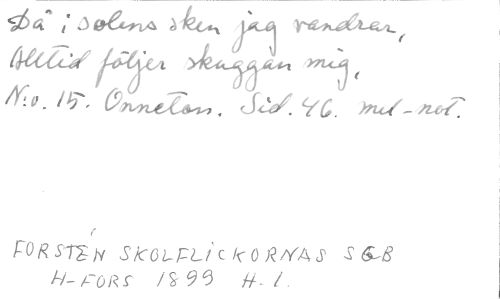 Då i solens sken jag vandrar,
Alltid följer skuggan mig,
N:o. 15. Sid. 46. mel-not.
FORSTÉN SKOLFLICKORNAS SGB
H-FORS 1899 H. 1.